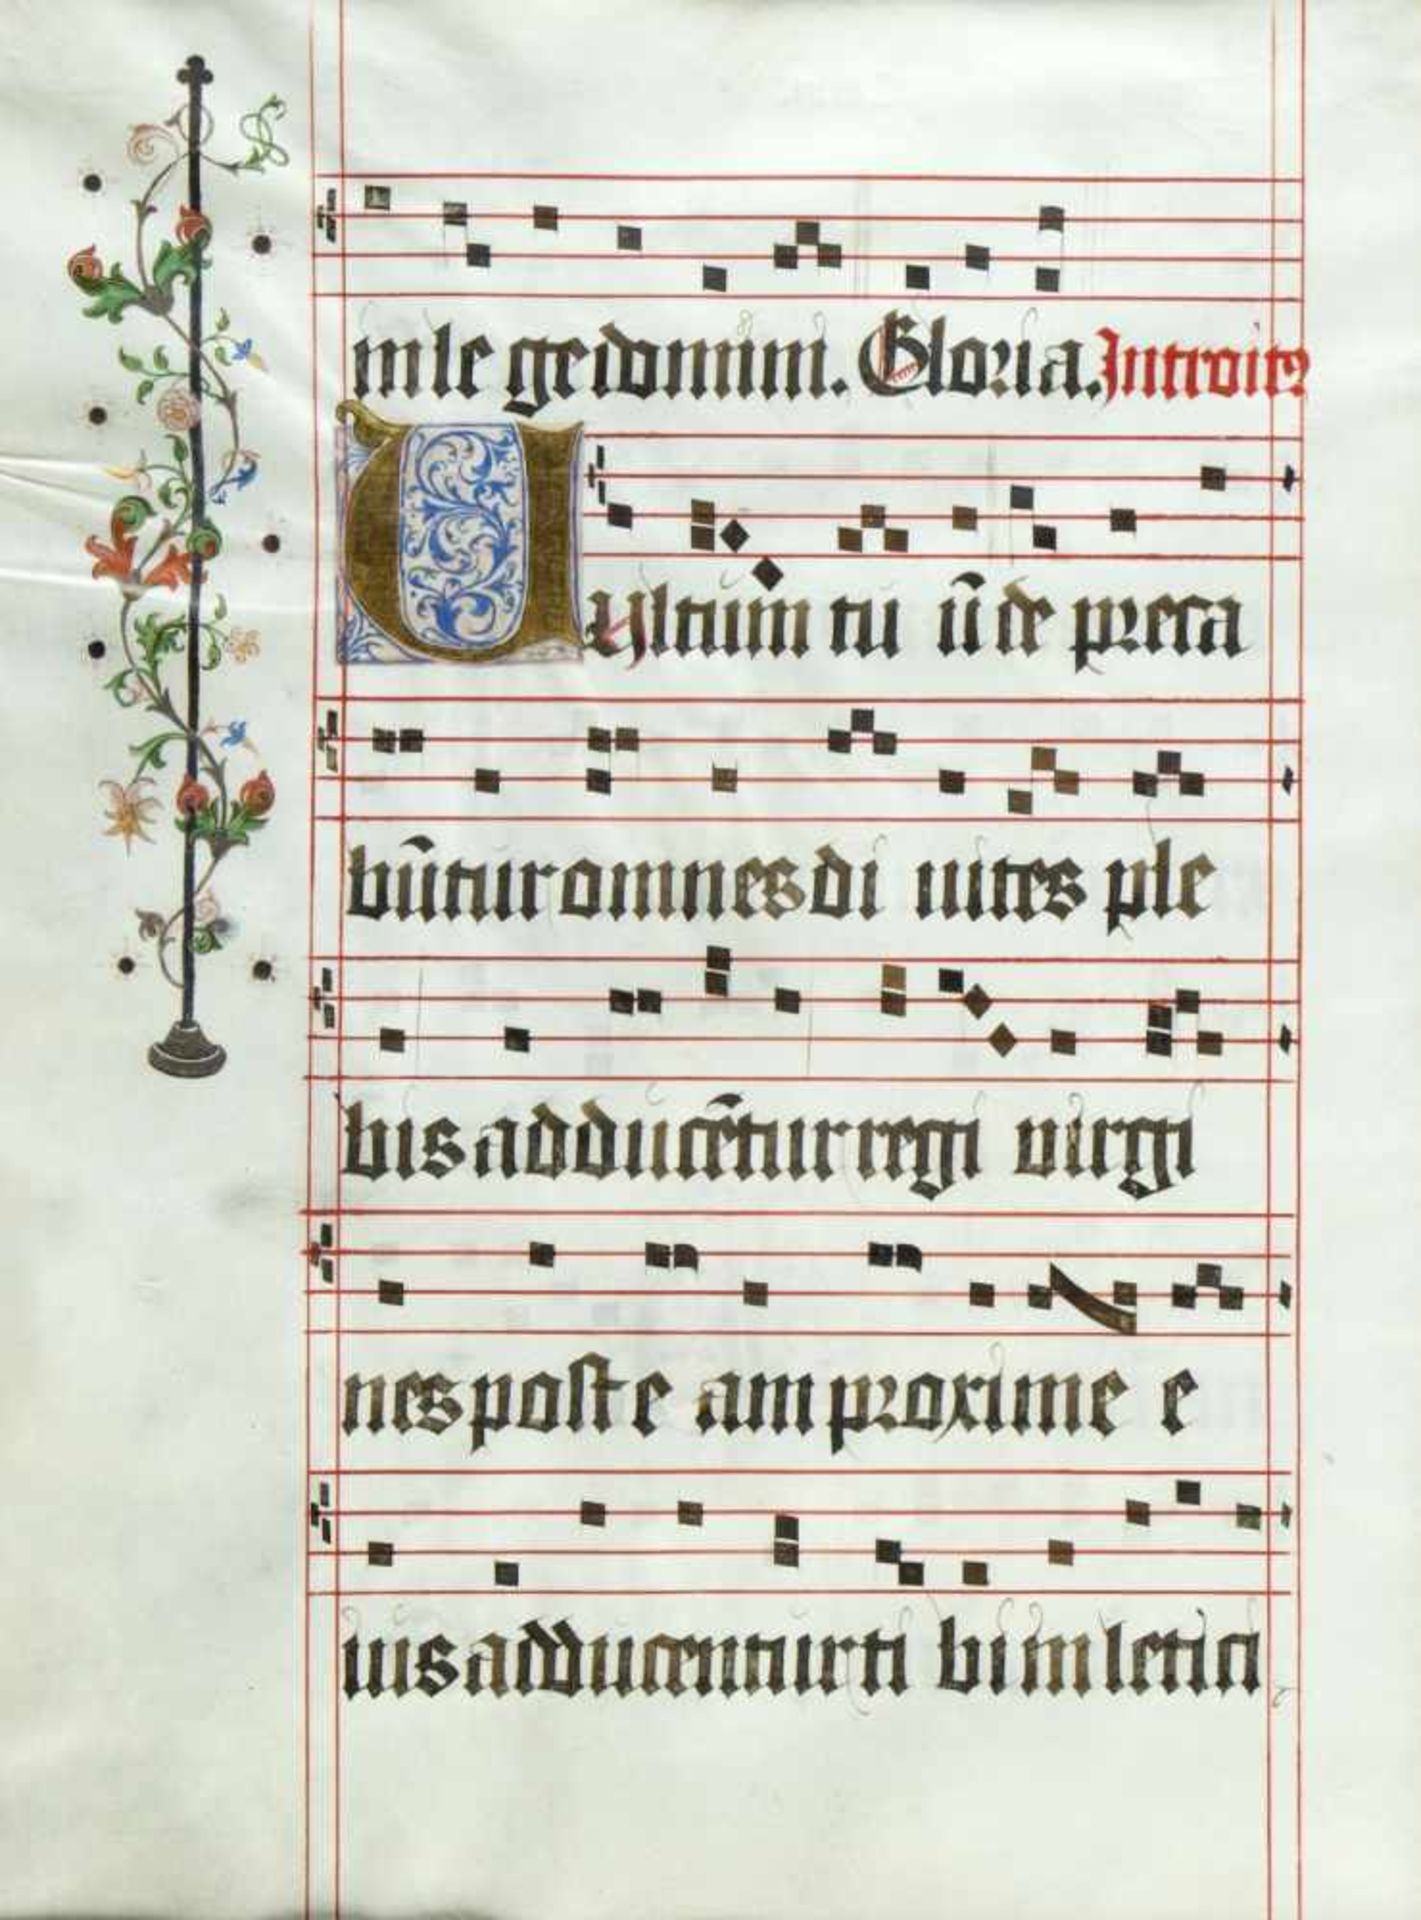 in le ge domini. Gloria. Introitꝰ
Vultum tu ū de preca
būtur omnes di uites ple
bis adducētur regi virgi
nes post e am proxime e
ius adducentur ti bi in letici